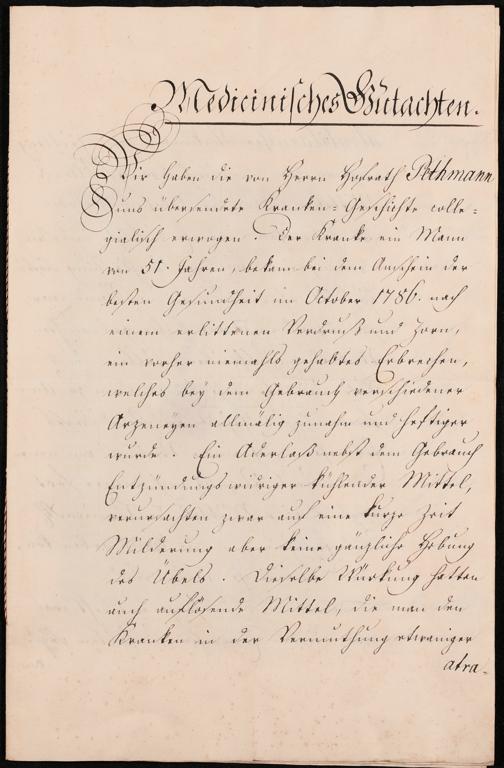 Medicinisches Gutachten.
Wir haben die von Herrn Hofrath Pethmann
uns übersendete Kranken-Geschichte colle-
gialisch erwogen. Der Kranke ein Mann
von 51. Jahren, bekam bei dem Anschein der
besten Gesundheit im October 1786. nach
einem erlittenen Verdruß und Zorn,
ein vorher niemahls gehabtes Erbrechen,
welches bey dem Gebrauch verschiedener
Arzeneyen allmälig zunahm und heftiger
wurde. Ein Aderlaß nebst dem Gebrauch
Entzündungswidriger kühlender Mittel,
verursachten zwar auf eine kurze Zeit
Milderung aber keine gänzliche Hebung
des Übels. Dieselbe Würkung hatten
auch auflösende Mittel, die man den
Kranken in der Vermuthung etwaniger
atra-